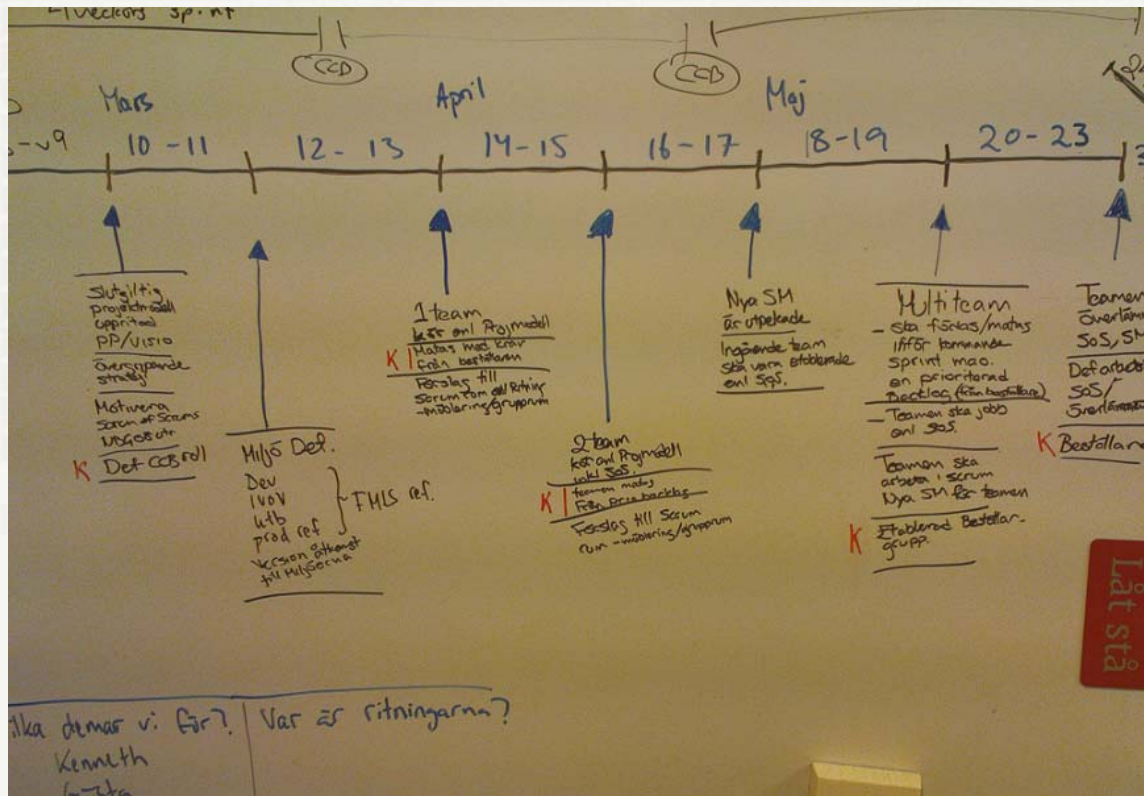 4veckors sprint
CCB
CCB
Mars
April
Maj
v9
10-11
12-13
14-15
16-17
18-19
20-23
Slutgiltig
projektmodell
uppritad
PP/Visio
Övergripande
strategi
Motivera
Scrum of Scrums
K Def CCB roll
Miljö Def.
Dev
IVOV
utb
prod ref
FMLS ref.
Version åtkomst
till Miljöerna
1 team
kör enl Projmodell
K Matas med krav
från beställaren
Förslag till
Scrum rom enl Ritning
-möblering/grupprum
2 team
kör enl Projmodell
inkl SoS.
K teamen matas
Från prio backlog
Förslag till Scrum
rum -möblering/grupprum
Nya SM
är utpekade
Ingående team
ska vara etablerade
enl SoS.
Multiteam
- ska födas/matas
inför kommande
sprint m a o.
en prioriterad
Backlog (från beställare)
- Teamen ska jobb
enl SoS.
Teamen ska
arbeta i scrum
Nya SM för teamen
K Etablerad Beställar-
grupp.
Teamen
överlämn
SoS, SM
Def arbet
SoS/
Överlämn
K Beställar
Låt stå
ilka demar vi för?
Kenneth
Var är ritningarna?